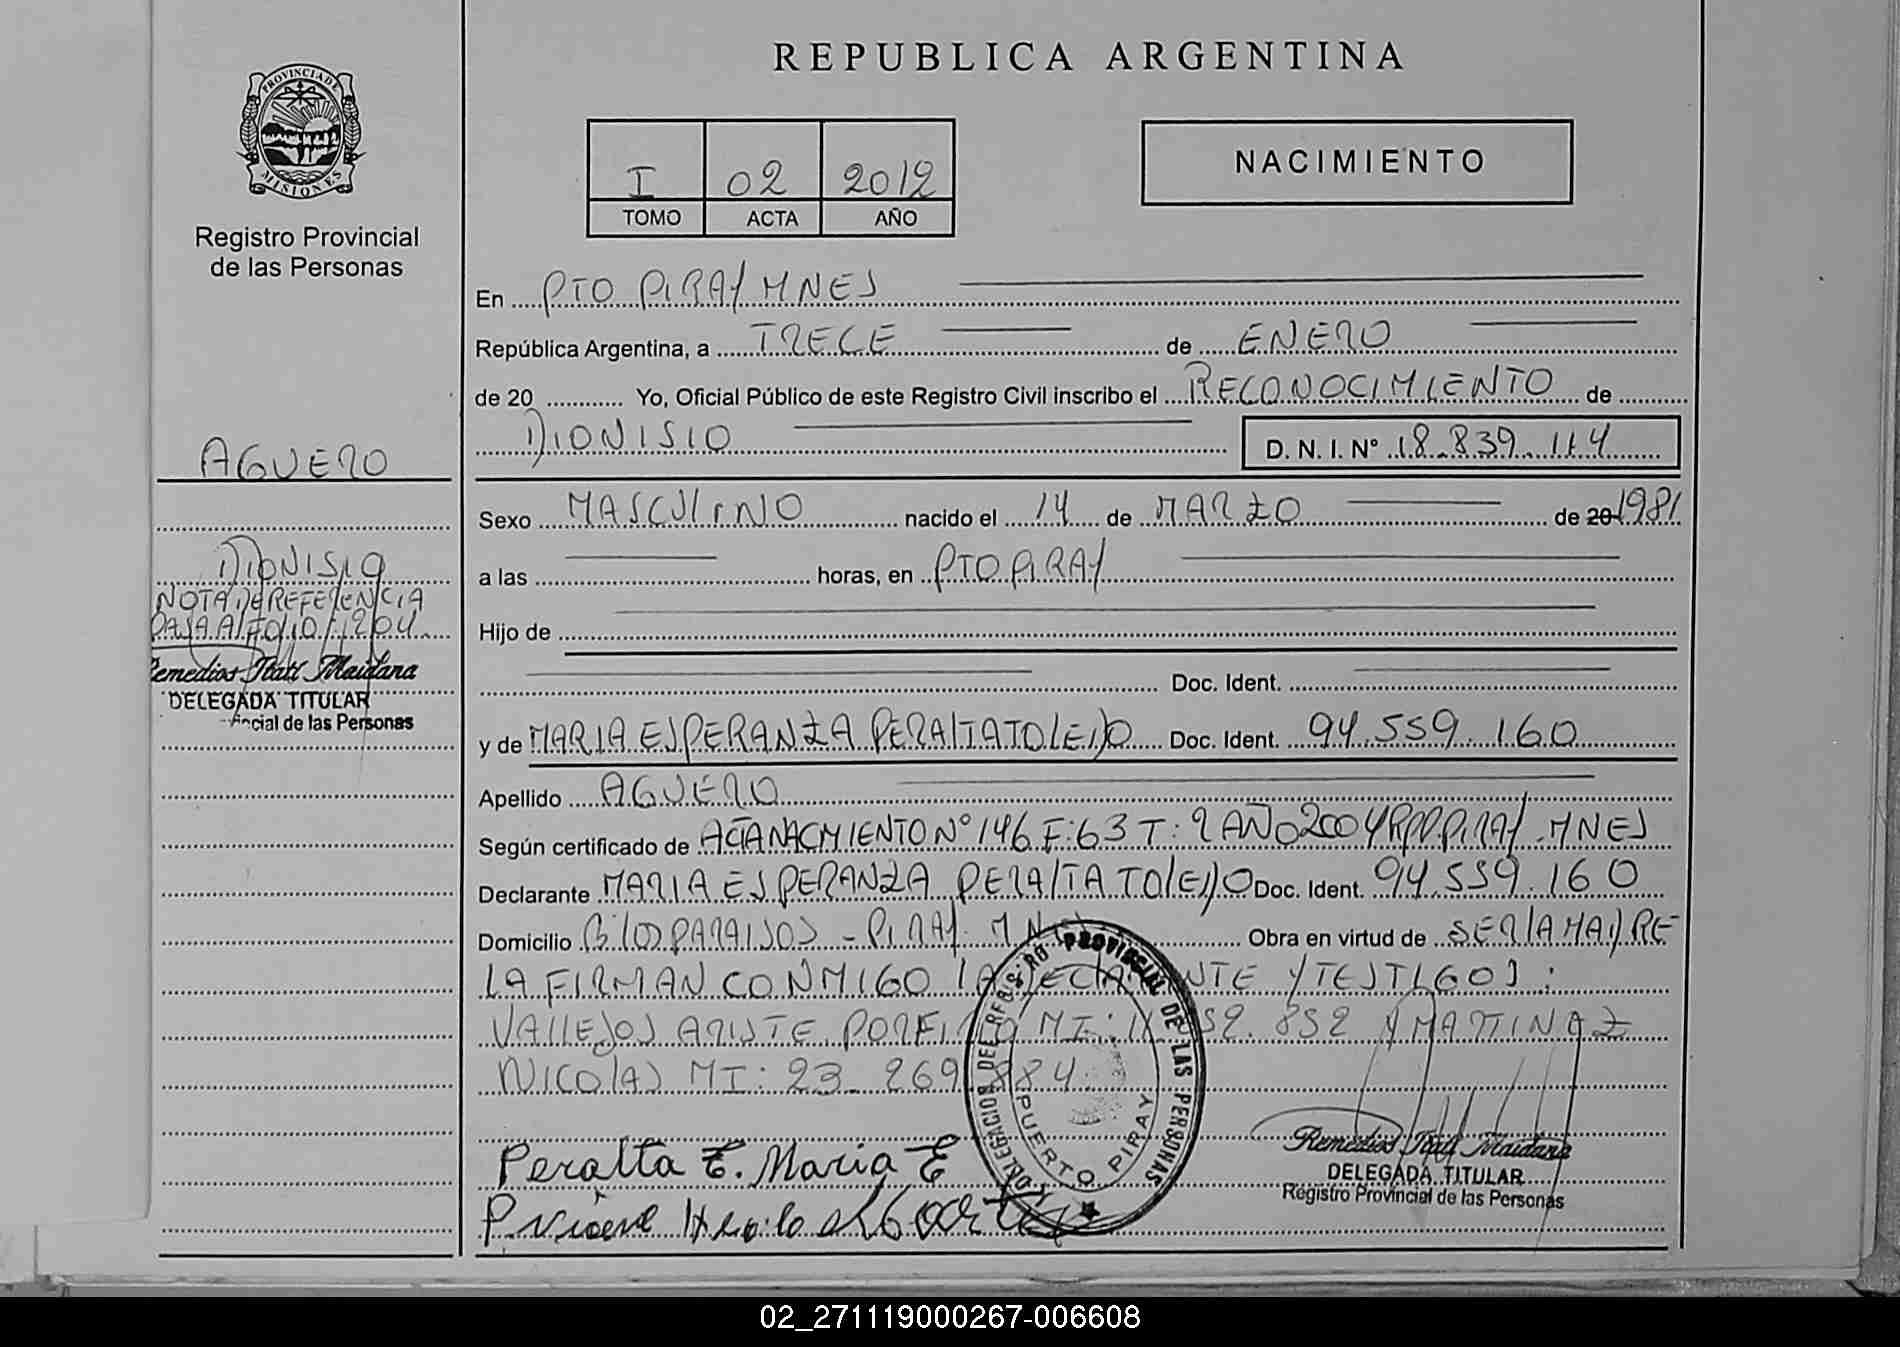 REPUBLICA ARGENTINA
PROVINCIA DE
MISIONES
Registro Provincial
de las Personas
I 02 2012
TOMO ACTA AÑO
NACIMIENTO
En PTO PIRAY MNES
República Argentina, a TRECE de ENERO
de 20 Yo, Oficial Público de este Registro Civil inscribo el RECONOCIMIENTO de
DIONISIO D. N. I. Nº 18.839.114
AGUERO
Sexo MASCULINO nacido el 14 de MARZO de 20 1981
DIONISIO
a las horas, en PTO PIRAY
NOTA DE REFERENCIA
PASA A FOLIO
Hijo de
Remedios Itatí Maidana
DELEGADA TITULAR
de las Personas
Doc. Ident.
y de MARIA ESPERANZA PERALTA TOLEDO Doc. Ident. 94.559.160
Apellido AGUERO
Según certificado de ACTA NACMIENTO Nº 146 F:63 T:2 AÑO 2004 RPP PIRAY MNES
Declarante MARIA ESPERANZA PERALTA TOLEDO Doc. Ident. 94.559.160
Domicilio Bº LOS PARAISOS - PIRAY MNES Obra en virtud de SER LA MADRE
LA FIRMAN CONMIGO LA DECLARANTE Y TESTIGOS:
VALLEJOS PORFIRIO MI: 852 Y MARTINEZ
NICOLAS MI: 23.269.884
DELEGACION DEL REGISTRO PROVINCIAL DE LAS PERSONAS
PUERTO PIRAY
Peralta T. Maria E
Remedios Itatí Maidana
DELEGADA TITULAR
Registro Provincial de las Personas
02_271119000267-006608